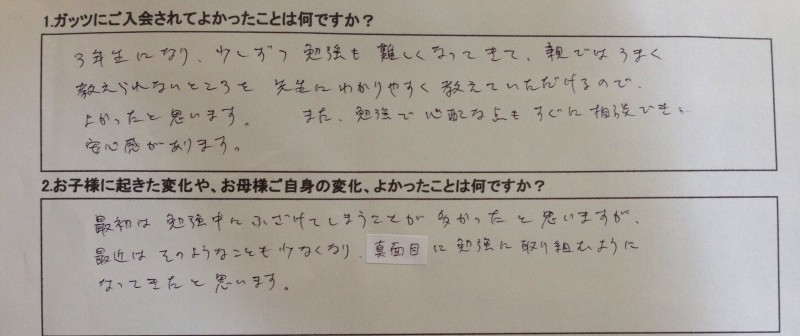 1.ガッツにご入会されてよかったことは何ですか？
3年生になり、少しずつ勉強も難しくなってきて、親ではうまく
教えられないところを先生にわかりやすく教えていただけるので、
よかったと思います。 また、勉強で心配な点もすぐに相談でき、
安心感があります。
2.お子様に起きた変化や、お母様ご自身の変化、よかったことは何ですか？
最初は勉強中にふざけてしまうことが多かったと思いますが、
最近はそのようなことも少なくなり、真面目に勉強に取り組むように
なってきたと思います。